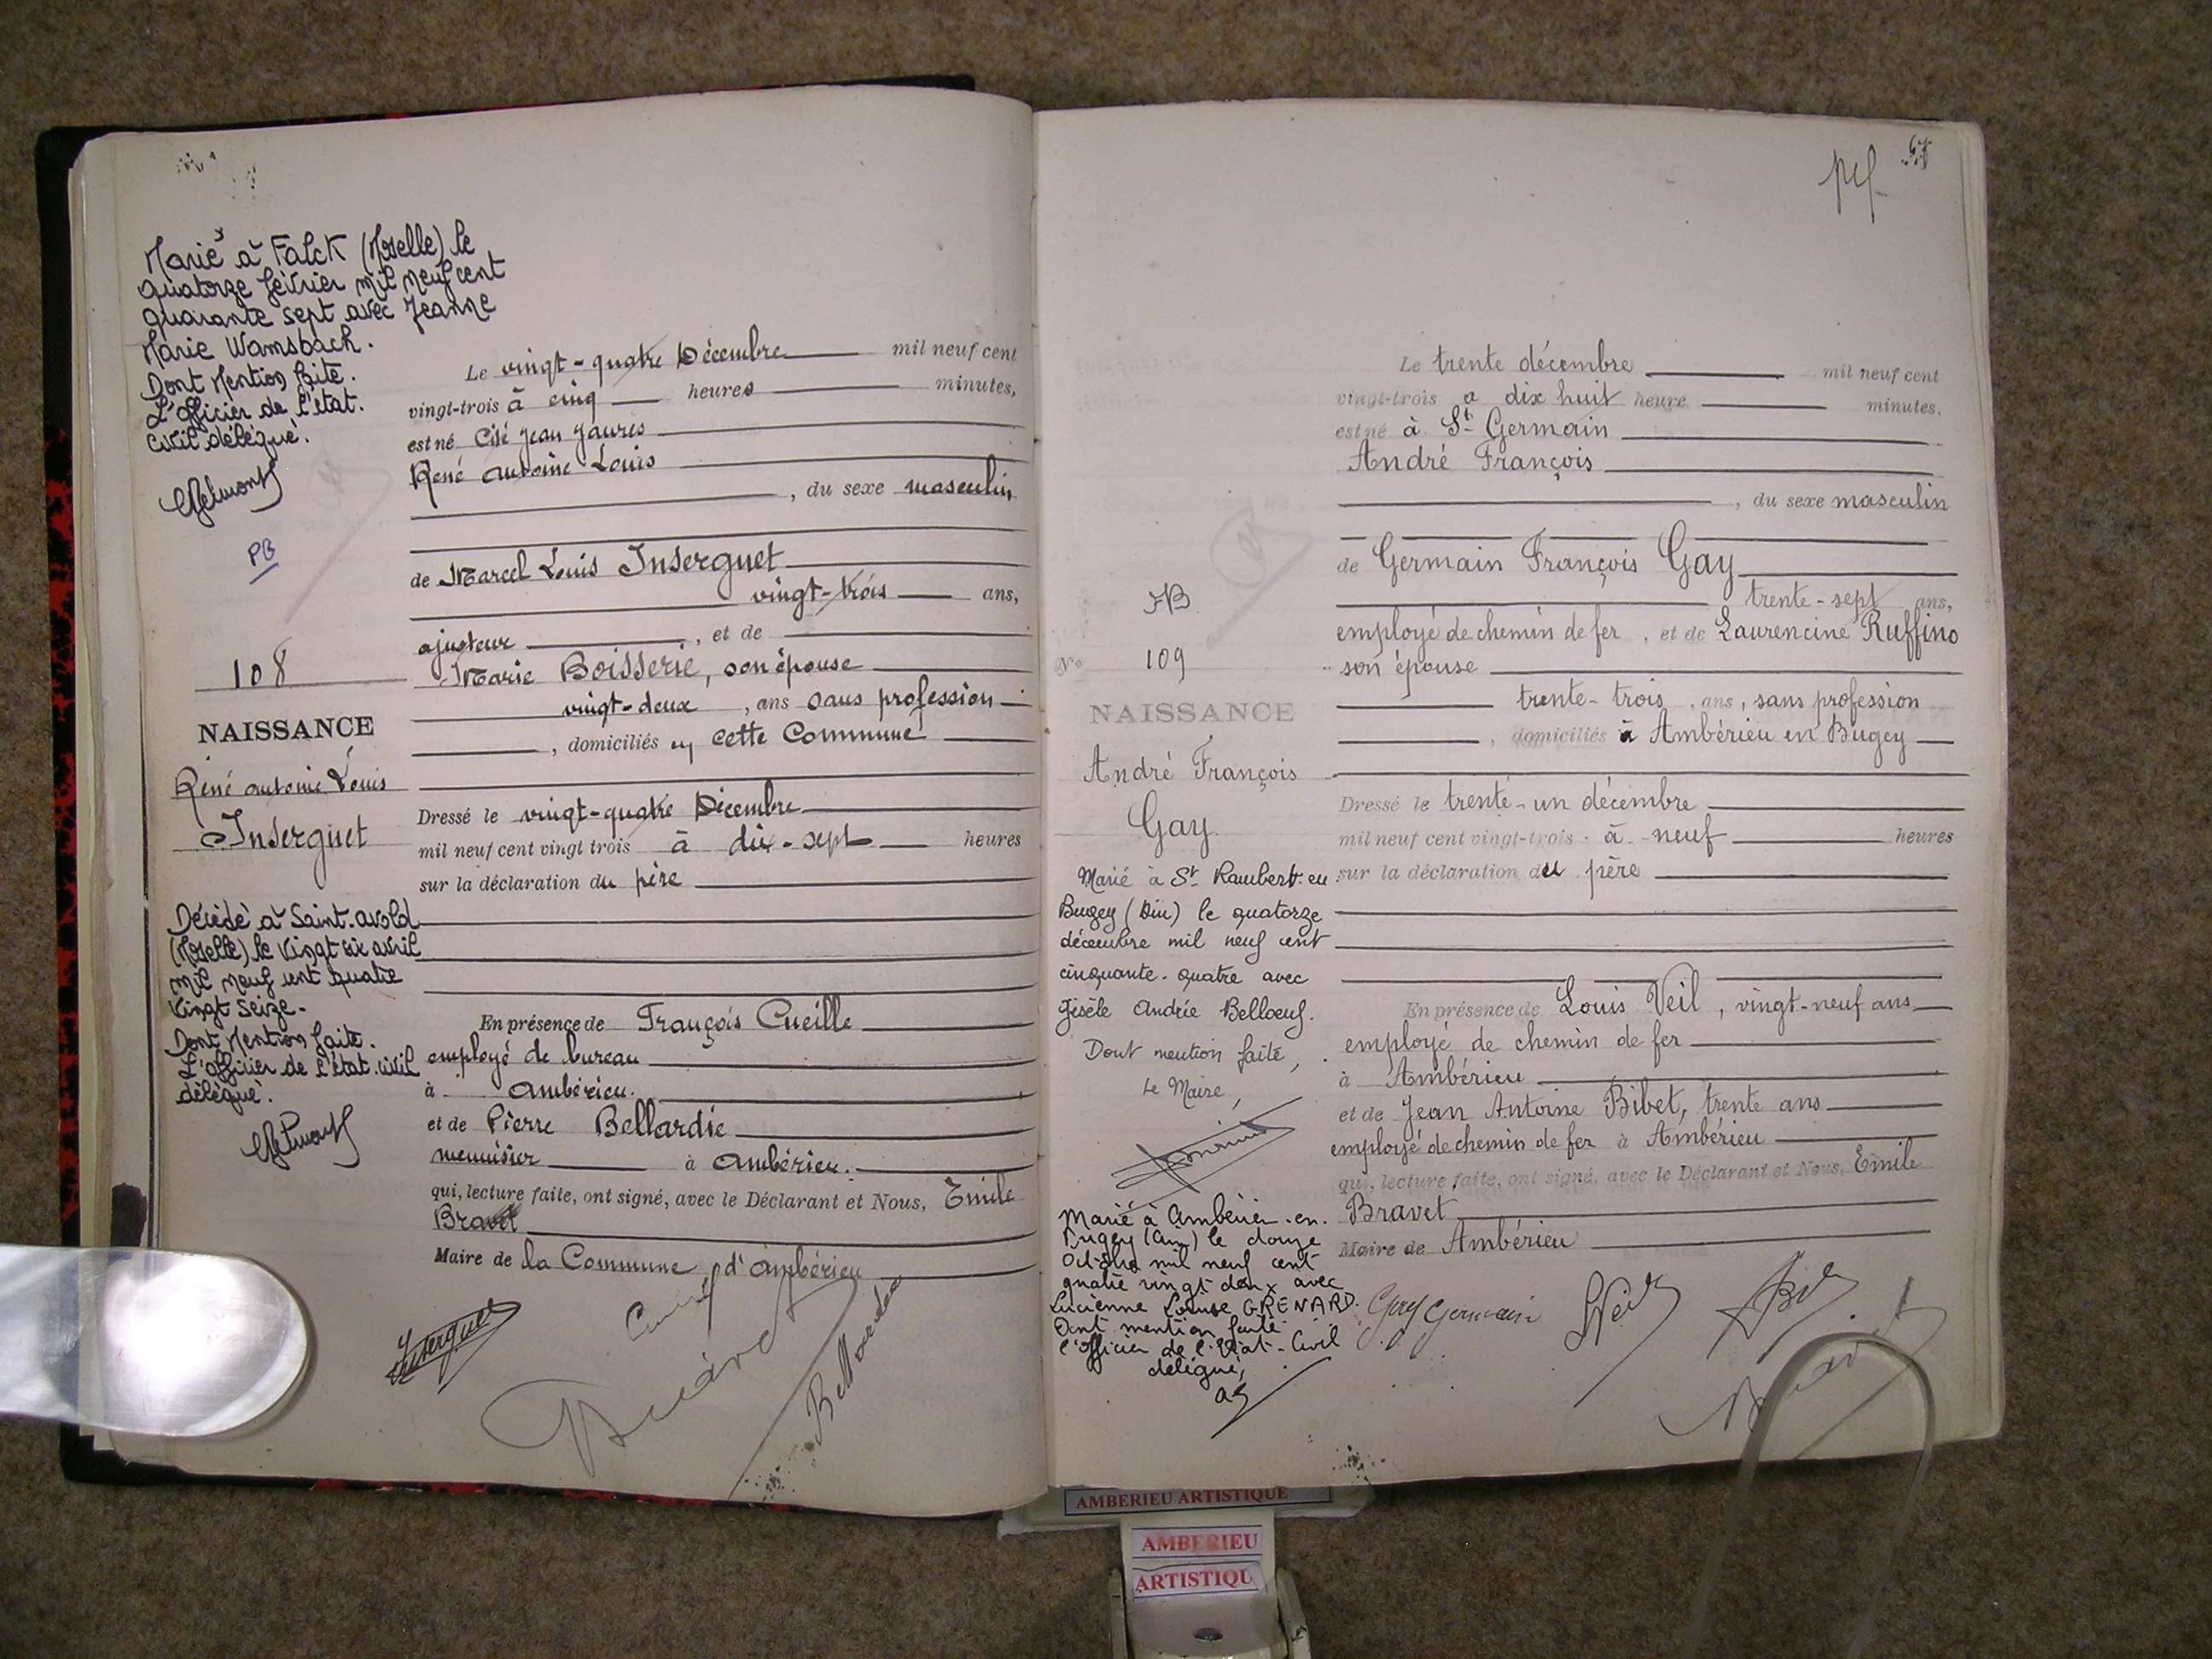 Marié à Falck (Moselle) le
quatorze février mil neuf cent
quarante sept avec Jeanne
Marie Wamsbach.
Dont Mention faite.
L'officier de l'état.
civil délégué.
PB
108
NAISSANCE
René Antoine Louis
Inserguet
Décédé à Saint-Avold
(Moselle) le vingt six avril
mil neuf cent quatre
vingt seize.
Dont Mention faite.
L'officier de l'état civil
délégué.
Le vingt-quatre Décembre mil neuf cent
vingt-trois à cinq heures minutes,
est né Cité Jean Jaurès
René Antoine Louis
, du sexe masculin
de Marcel Louis Inserguet
vingt-trois ans,
ajusteur , et de
Marie Boisserie, son épouse
vingt-deux , ans sans profession
, domiciliés en cette Commune
Dressé le vingt-quatre Décembre
mil neuf cent vingt trois à dix-sept heures
sur la déclaration du père
En présence de François Cueille
employé de bureau
à Ambérieu.
et de Pierre Bellardie
menuisier à Ambérieu.
qui, lecture faite, ont signé, avec le Déclarant et Nous, Emile
Bravet
Maire de la Commune d'Ambérieu
Inserguet
Bravet
pcf
N° 109
NAISSANCE
André François
Gay
Marié à St Rambert-en
Bugey (Ain) le quatorze
décembre mil neuf cent
cinquante-quatre avec
Gisèle Andrée Belloeuf.
Dont mention faite,
Le Maire,
Marié à Ambérieu-en-
Bugey (Ain) le douze
Octobre mil neuf cent
quatre vingt deux avec
Lucienne Louise GRENARD.
Dont mention faite
l'Officier de l'Etat-Civil
délégué,
Le trente décembre mil neuf cent
vingt-trois a dix huit heure minutes.
est né à St Germain
André François
, du sexe masculin
de Germain François Gay
trente-sept ans,
employé de chemin de fer , et de Laurencine Ruffino
son épouse
trente-trois , ans, sans profession
, domiciliés à Ambérieu en Bugey
Dressé le trente-un décembre
mil neuf cent vingt-trois à neuf heures
sur la déclaration du père
En présence de Louis Veil, vingt-neuf ans
employé de chemin de fer
à Ambérieu
et de Jean Antoine Bibet, trente ans
employé de chemin de fer à Ambérieu
qui, lecture faite, ont signé, avec le Déclarant et Nous, Emile
Bravet
Maire de Ambérieu
Gay Germain
AMBERIEU ARTISTIQUE
AMBERIEU
ARTISTIQU